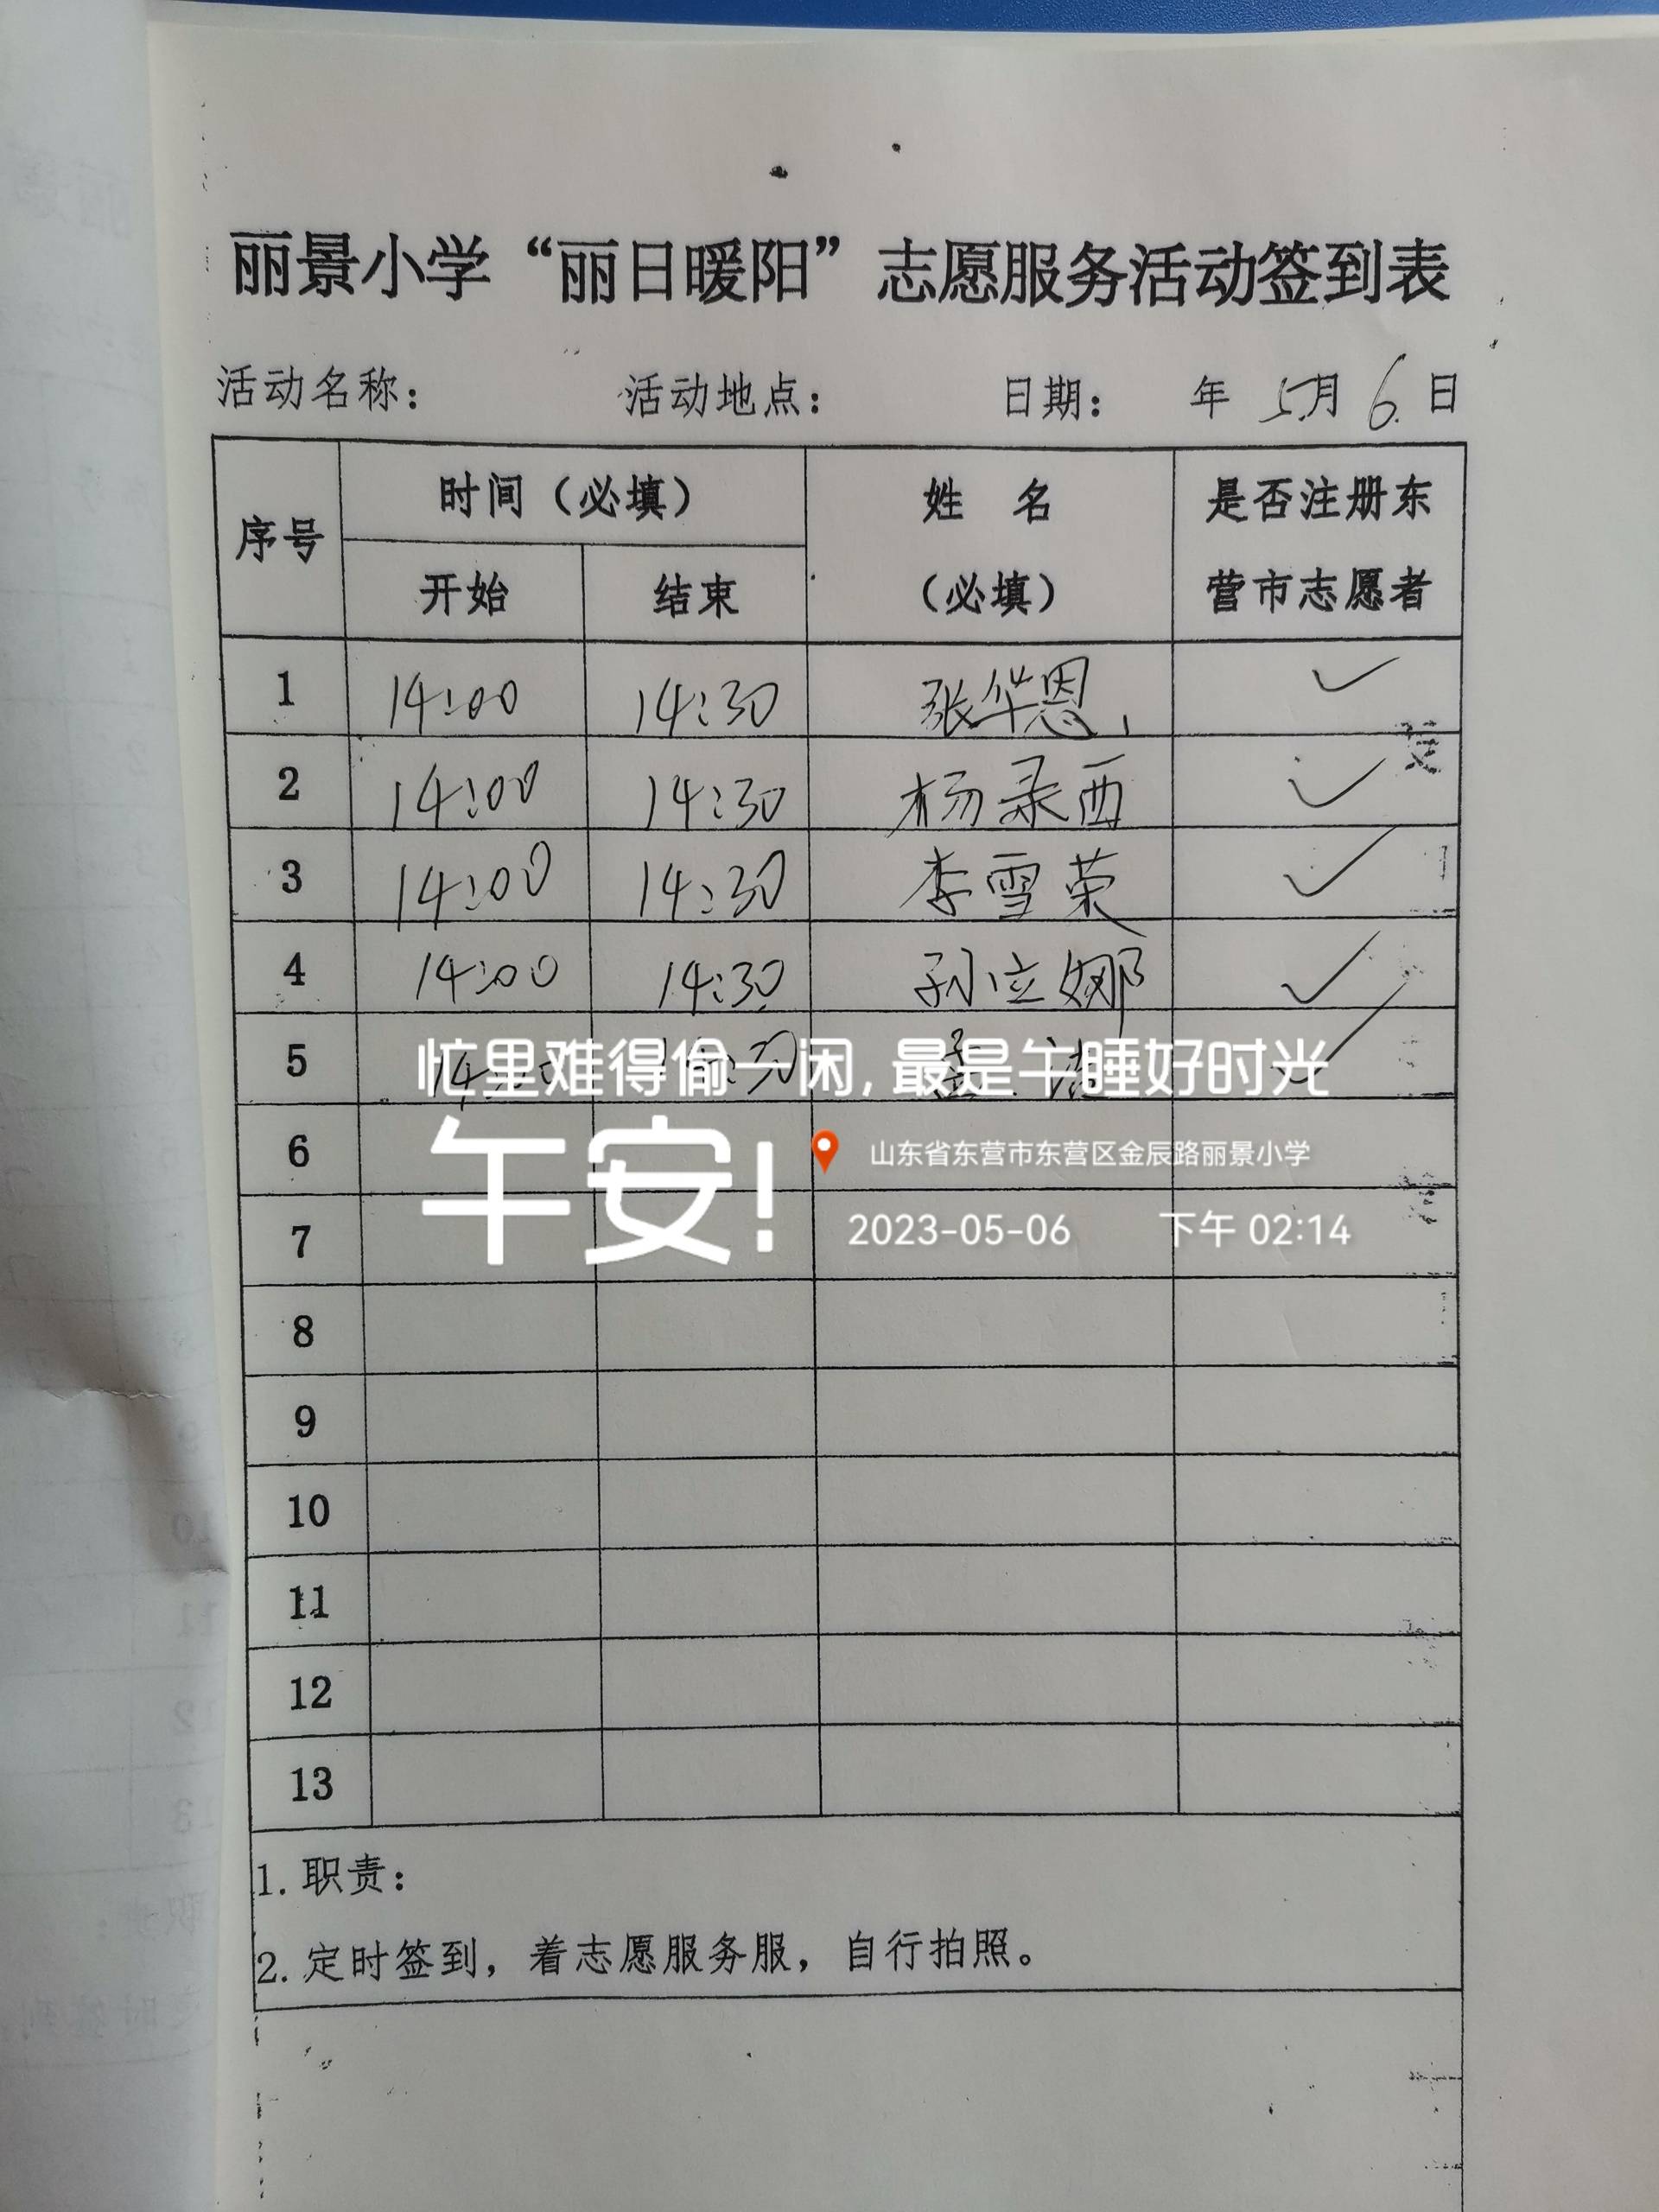 丽景小学“丽日暖阳”志愿服务活动签到表
活动名称： 活动地点： 日期： 年 5月 6 日
序号 时间（必填） 姓 名（必填） 是否注册东营市志愿者
开始 结束
1 14:00 14:30 张华恩 ✓
2 14:00 14:30 杨录西 ✓
3 14:00 14:30 李雪荣 ✓
4 14:00 14:30 孙立娜 ✓
5 ✓
忙里难得偷一闲,最是午睡好时光
午安!
山东省东营市东营区金辰路丽景小学
2023-05-06 下午 02:14
6
7
8
9
10
11
12
13
1.职责：
2.定时签到，着志愿服务服，自行拍照。